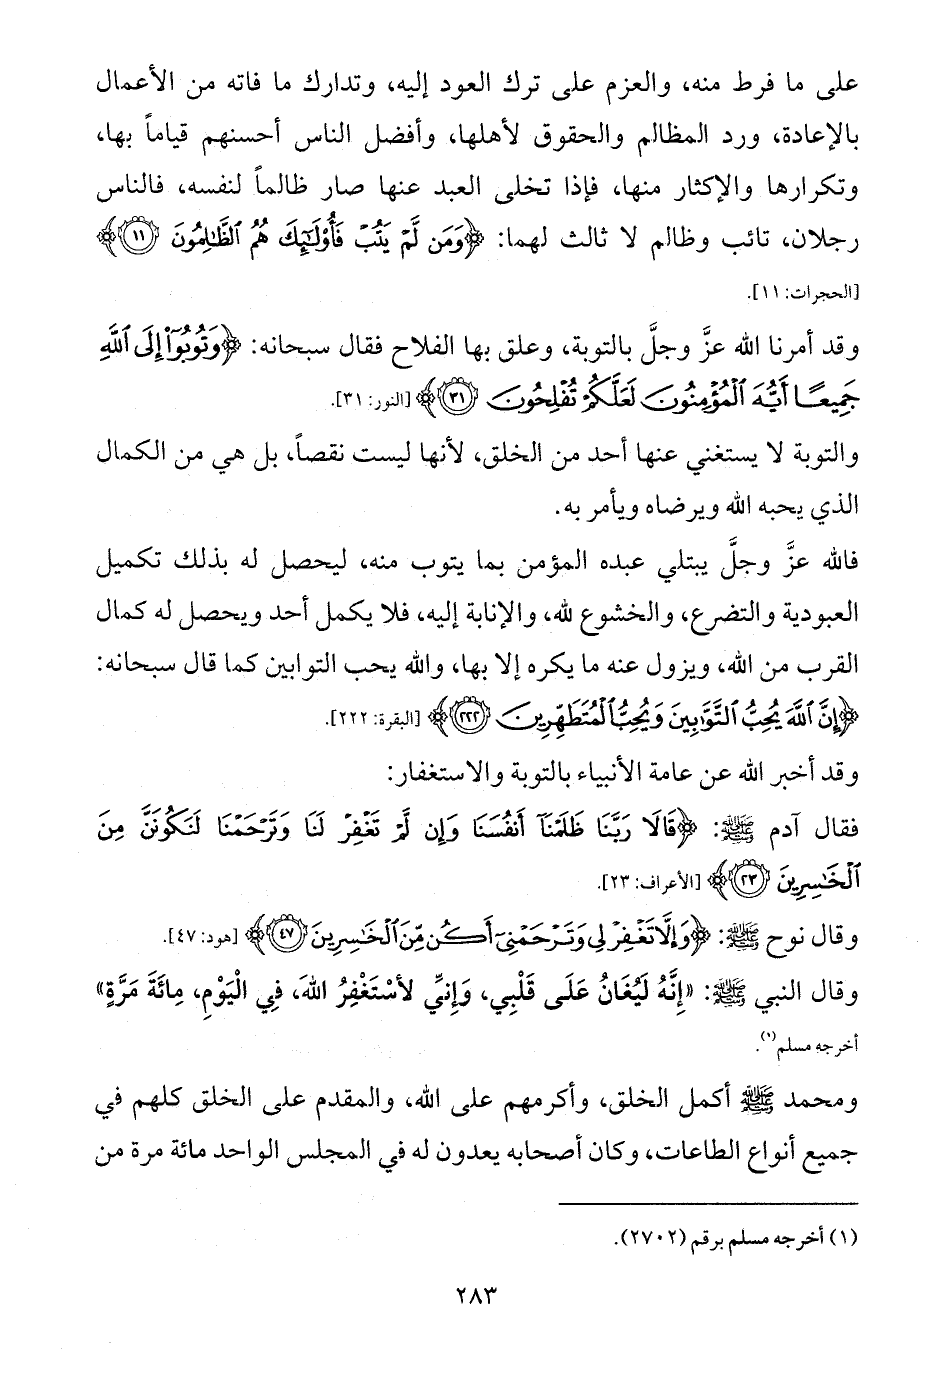 على ما فرط منه، والعزم على ترك العود إليه، وتدارك ما فاته من الأعمال
بالإعادة، ورد المظالم والحقوق لأهلها، وأفضل الناس أحسنهم قياماً بها،
وتكرارها والإكثار منها، فإذا تخلى العبد عنها صار ظالماً لنفسه، فالناس
رجلان، تائب وظالم لا ثالث لهما: ﴿وَمَن لَّمْ يَتُبْ فَأُوْلَٰٓئِكَ هُمُ ٱلظَّٰلِمُونَ ١١﴾
[الحجرات: ١١].
وقد أمرنا الله عزَّ وجلَّ بالتوبة، وعلق بها الفلاح فقال سبحانه: ﴿وَتُوبُوٓاْ إِلَى ٱللَّهِ
جَمِيعًا أَيُّهَ ٱلْمُؤْمِنُونَ لَعَلَّكُمْ تُفْلِحُونَ ٣١﴾ [النور: ٣١].
والتوبة لا يستغني عنها أحد من الخلق، لأنها ليست نقصاً، بل هي من الكمال
الذي يحبه الله ويرضاه ويأمر به.
فالله عزَّ وجلَّ يبتلي عبده المؤمن بما يتوب منه، ليحصل له بذلك تكميل
العبودية والتضرع، والخشوع لله، والإنابة إليه، فلا يكمل أحد ويحصل له كمال
القرب من الله، ويزول عنه ما يكره إلا بها، والله يحب التوابين كما قال سبحانه:
﴿إِنَّ ٱللَّهَ يُحِبُّ ٱلتَّوَّٰبِينَ وَيُحِبُّ ٱلْمُتَطَهِّرِينَ ٢٢٢﴾ [البقرة: ٢٢٢].
وقد أخبر الله عن عامة الأنبياء بالتوبة والاستغفار:
فقال آدم ﷺ: ﴿قَالَا رَبَّنَا ظَلَمْنَآ أَنفُسَنَا وَإِن لَّمْ تَغْفِرْ لَنَا وَتَرْحَمْنَا لَنَكُونَنَّ مِنَ
ٱلْخَٰسِرِينَ ٢٣﴾ [الأعراف: ٢٣].
وقال نوح ﷺ: ﴿وَإِلَّا تَغْفِرْ لِي وَتَرْحَمْنِيٓ أَكُن مِّنَ ٱلْخَٰسِرِينَ ٤٧﴾ [هود: ٤٧].
وقال النبي ﷺ: «إِنَّهُ لَيُغَانُ عَلَى قَلْبِي، وَإِنِّي لأَسْتَغْفِرُ اللهَ، فِي الْيَوْمِ، مِائَةَ مَرَّةٍ»
أخرجه مسلم(١).
ومحمد ﷺ أكمل الخلق، وأكرمهم على الله، والمقدم على الخلق كلهم في
جميع أنواع الطاعات، وكان أصحابه يعدون له في المجلس الواحد مائة مرة من
(١) أخرجه مسلم برقم (٢٧٠٢).
٢٨٣